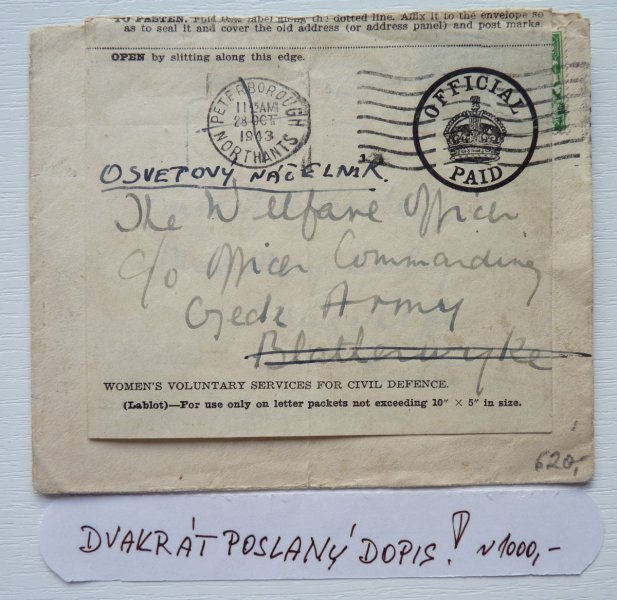 TO FASTEN. Fold this label along the dotted line. Affix it to the envelope so
as to seal it and cover the old address (or address panel) and post marks.
OPEN by slitting along this edge.
PETERBOROUGH
11-15AM
28 OCT
1943
NORTHANTS
OFFICIAL
PAID
OSVETOVÝ NÁČELNIK.
The Welfare Officer
c/o Officer Commanding
Czech Army
Blatherwyke
WOMEN'S VOLUNTARY SERVICES FOR CIVIL DEFENCE.
(Lablot)—For use only on letter packets not exceeding 10" × 5" in size.
620,-
DVAKRÁT POSLANÝ DOPIS! N1000,-